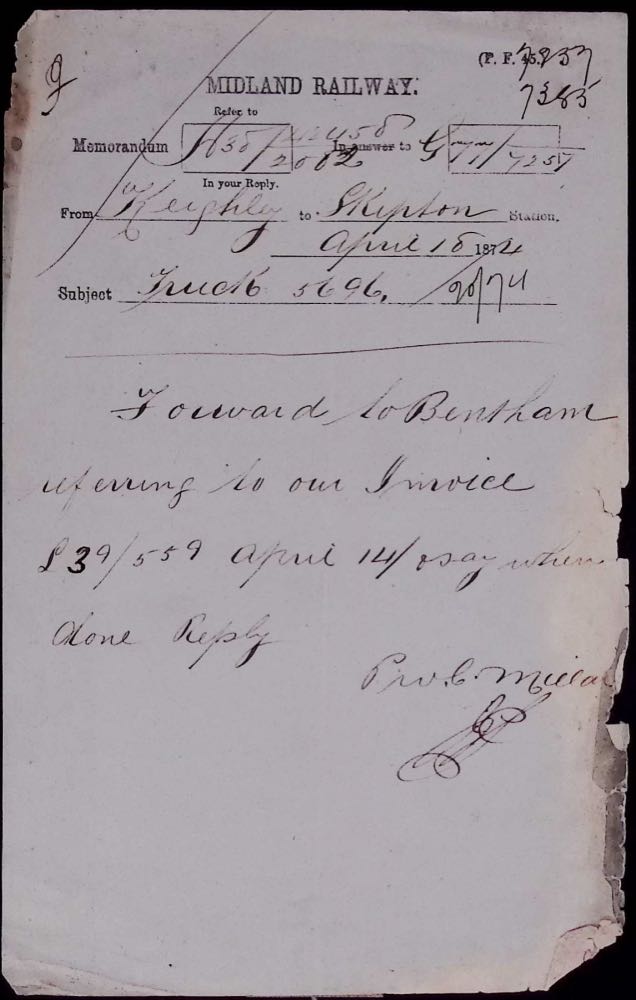 (P. F. 45.) 7237
7385
MIDLAND RAILWAY.
Refer to
Memorandum 2002 In answer to G 7257
In your Reply.
From Keighley to Skipton Station.
April 15 1874
Subject Truck 5696. 20/74
Forward to Bentham
referring to our Invoice
39/559 April 14/ & say when
done Reply
Pro C. Millar